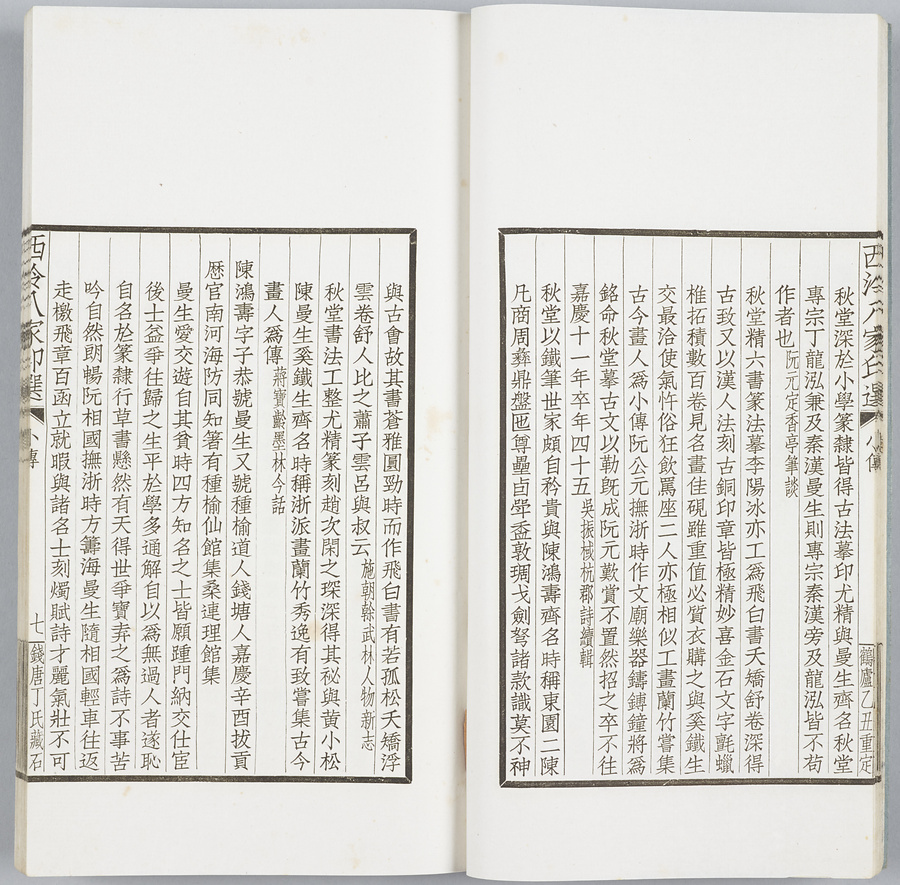 西泠八家印選
小傳
鶴廬乙丑重定
秋堂深於小學篆隸皆得古法摹印尤精與曼生齊名秋堂
專宗丁龍泓兼及秦漢曼生則專宗秦漢旁及龍泓皆不苟
作者也阮元定香亭筆談
秋堂精六書篆法摹李陽冰亦工爲飛白書夭矯舒卷深得
古致又以漢人法刻古銅印章皆極精妙喜金石文字氈蠟
椎拓積數百卷見名畫佳硯雖重值必質衣購之與奚鐵生
交最洽使氣忤俗狂飲罵座二人亦極相似工畫蘭竹嘗集
古今畫人爲小傳阮公元撫浙時作文廟樂器鑄鎛鐘將爲
銘命秋堂摹古文以勒旣成阮元歎賞不置然招之卒不往
嘉慶十一年卒年四十五吳振棫杭郡詩續輯
秋堂以鐵筆世家頗自矜貴與陳鴻壽齊名時稱東園二陳
凡商周彝鼎盤匜尊罍卣斝盉敦琱戈劍弩諸款識莫不神
與古會故其書蒼雅圓勁時而作飛白書有若孤松夭矯浮
雲卷舒人比之蕭子雲呂與叔云施朝榦武林人物新志
秋堂書法工整尤精篆刻趙次閑之琛深得其祕與黃小松
陳曼生奚鐵生齊名時稱浙派畫蘭竹秀逸有致嘗集古今
畫人爲傳蔣寶齡墨林今話
陳鴻壽字子恭號曼生又號種榆道人錢塘人嘉慶辛酉拔貢
歷官南河海防同知箸有種榆仙館集桑連理館集
曼生愛交遊自其貧時四方知名之士皆願踵門納交仕宦
後士益爭往歸之生平於學多通解自以爲無過人者遂恥
自名於篆隸行草書懸然有天得世爭寶弆之爲詩不事苦
吟自然朗暢阮相國撫浙時方籌海曼生隨相國輕車往返
走檄飛章百函立就暇與諸名士刻燭賦詩才麗氣壯不可
西泠八家印選
小傳
七
錢唐丁氏藏石